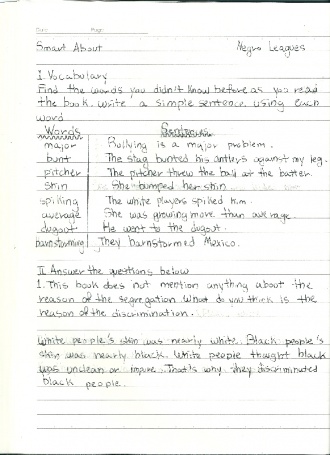 Date Page
Smart About Negro Leagues
I. Vocabulary
Find the words you didn't know before as you read
the book. Write a simple sentence using each
word
Words Sentences
major Bullying is a major problem.
bunt The stag bunted his antlers against my leg.
pitcher The pitcher threw the ball at the batter.
skin She bumped her skin
spilling The white players spilled him.
average She was growing more than average.
dugout He went to the dugout.
barnstorming They barnstormed Mexico.
II Answer the questions below
1. This book does not mention anything about the
reason of the segregation What do you think is the
reason of the discrimination.
White people's skin was nearly white. Black people's
skin was nearly black. White people thought black
was unclean or impure. That's why they discriminated
black people.